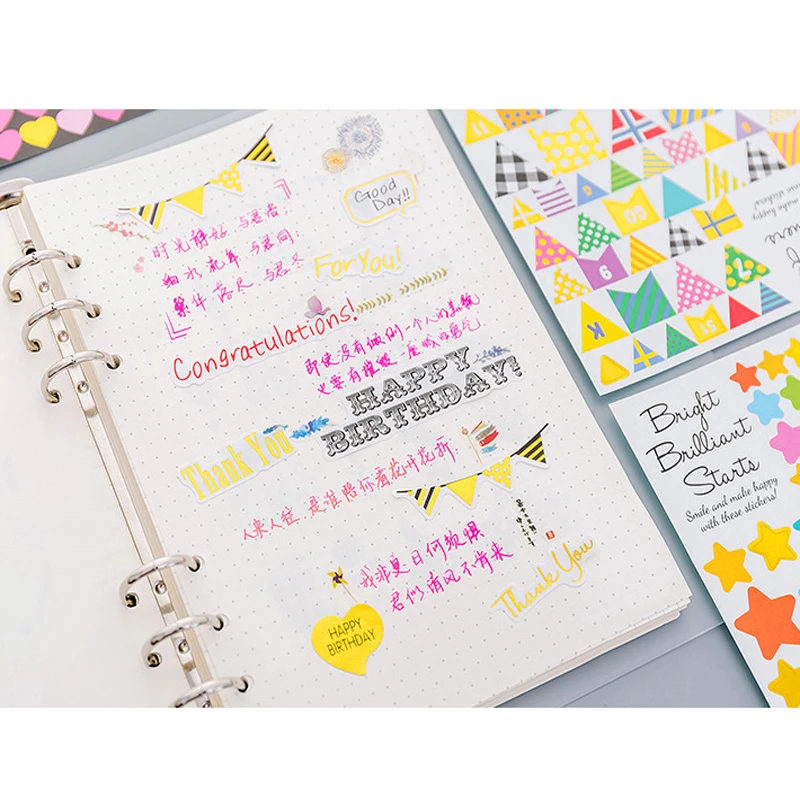 Good
Day!!
时光静好 与君语;
细水流年 与君同;
繁华落尽 与君
For You!
Congratulations!
即使没有做倒一个人的
也要有摧毁一座城的勇气
HAPPY
BIRTHDAY!
Thank You
人来人往 是谁陪你看花开花折
我非夏日何须惧
君似清风不肯来
Thank You
HAPPY
BIRTHDAY
Bright
Brilliant
Starts
Smile and make happy
with these stickers!
11
9
K
51